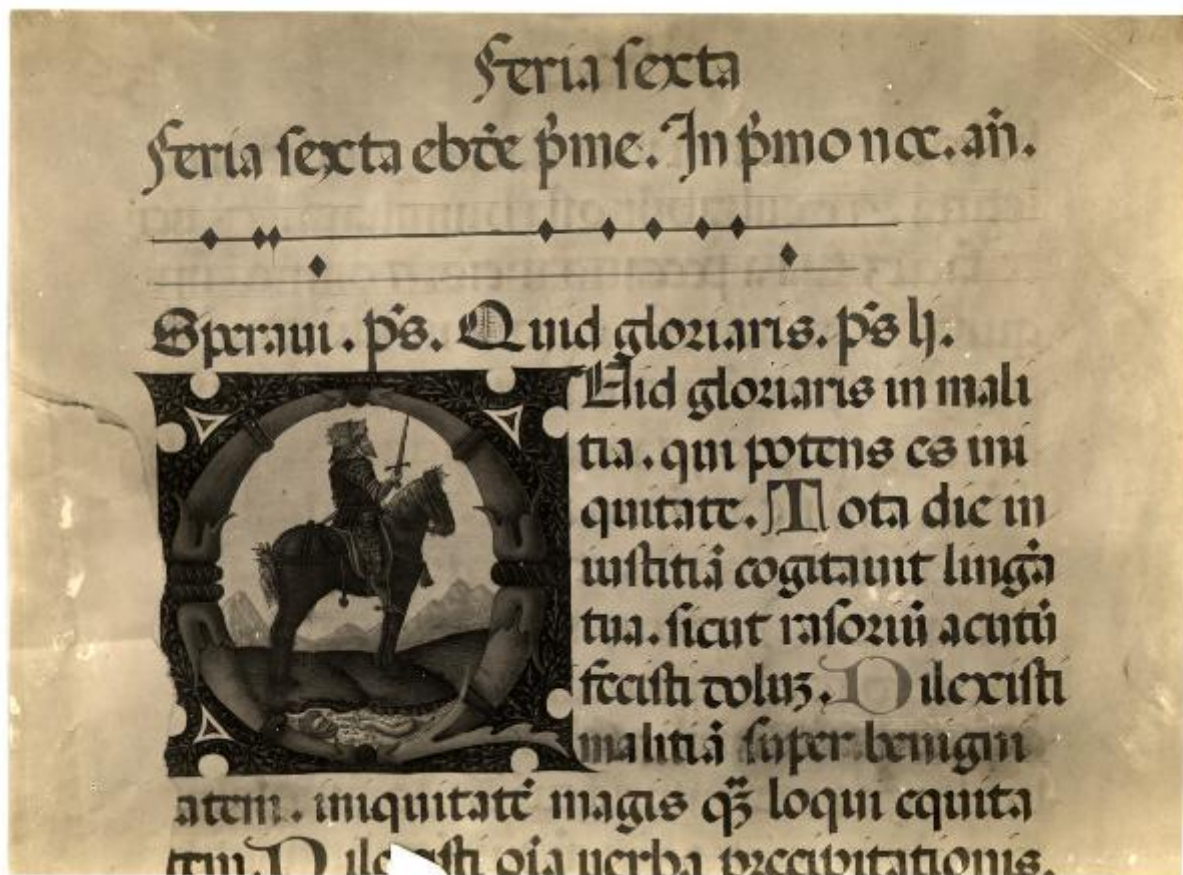 Feria sexta
Feria sexta ebdẽ p̾me. In p̾mo noc. añ.
Speraui. p̃s. Quid gloriaris. p̃s lj.
Uid gloriaris in mali
tia. qui potens es ini
quitate. Tota die in
iustitiã cogitauit linguã
tua. sicut rasoriũ acutũ
fecisti doluʒ. Dilexisti
malitiã super benigni
atem. iniquitatẽ magis qʒ̃ loqui equita
tem. Dilexisti oĩa uerba precipitationis.